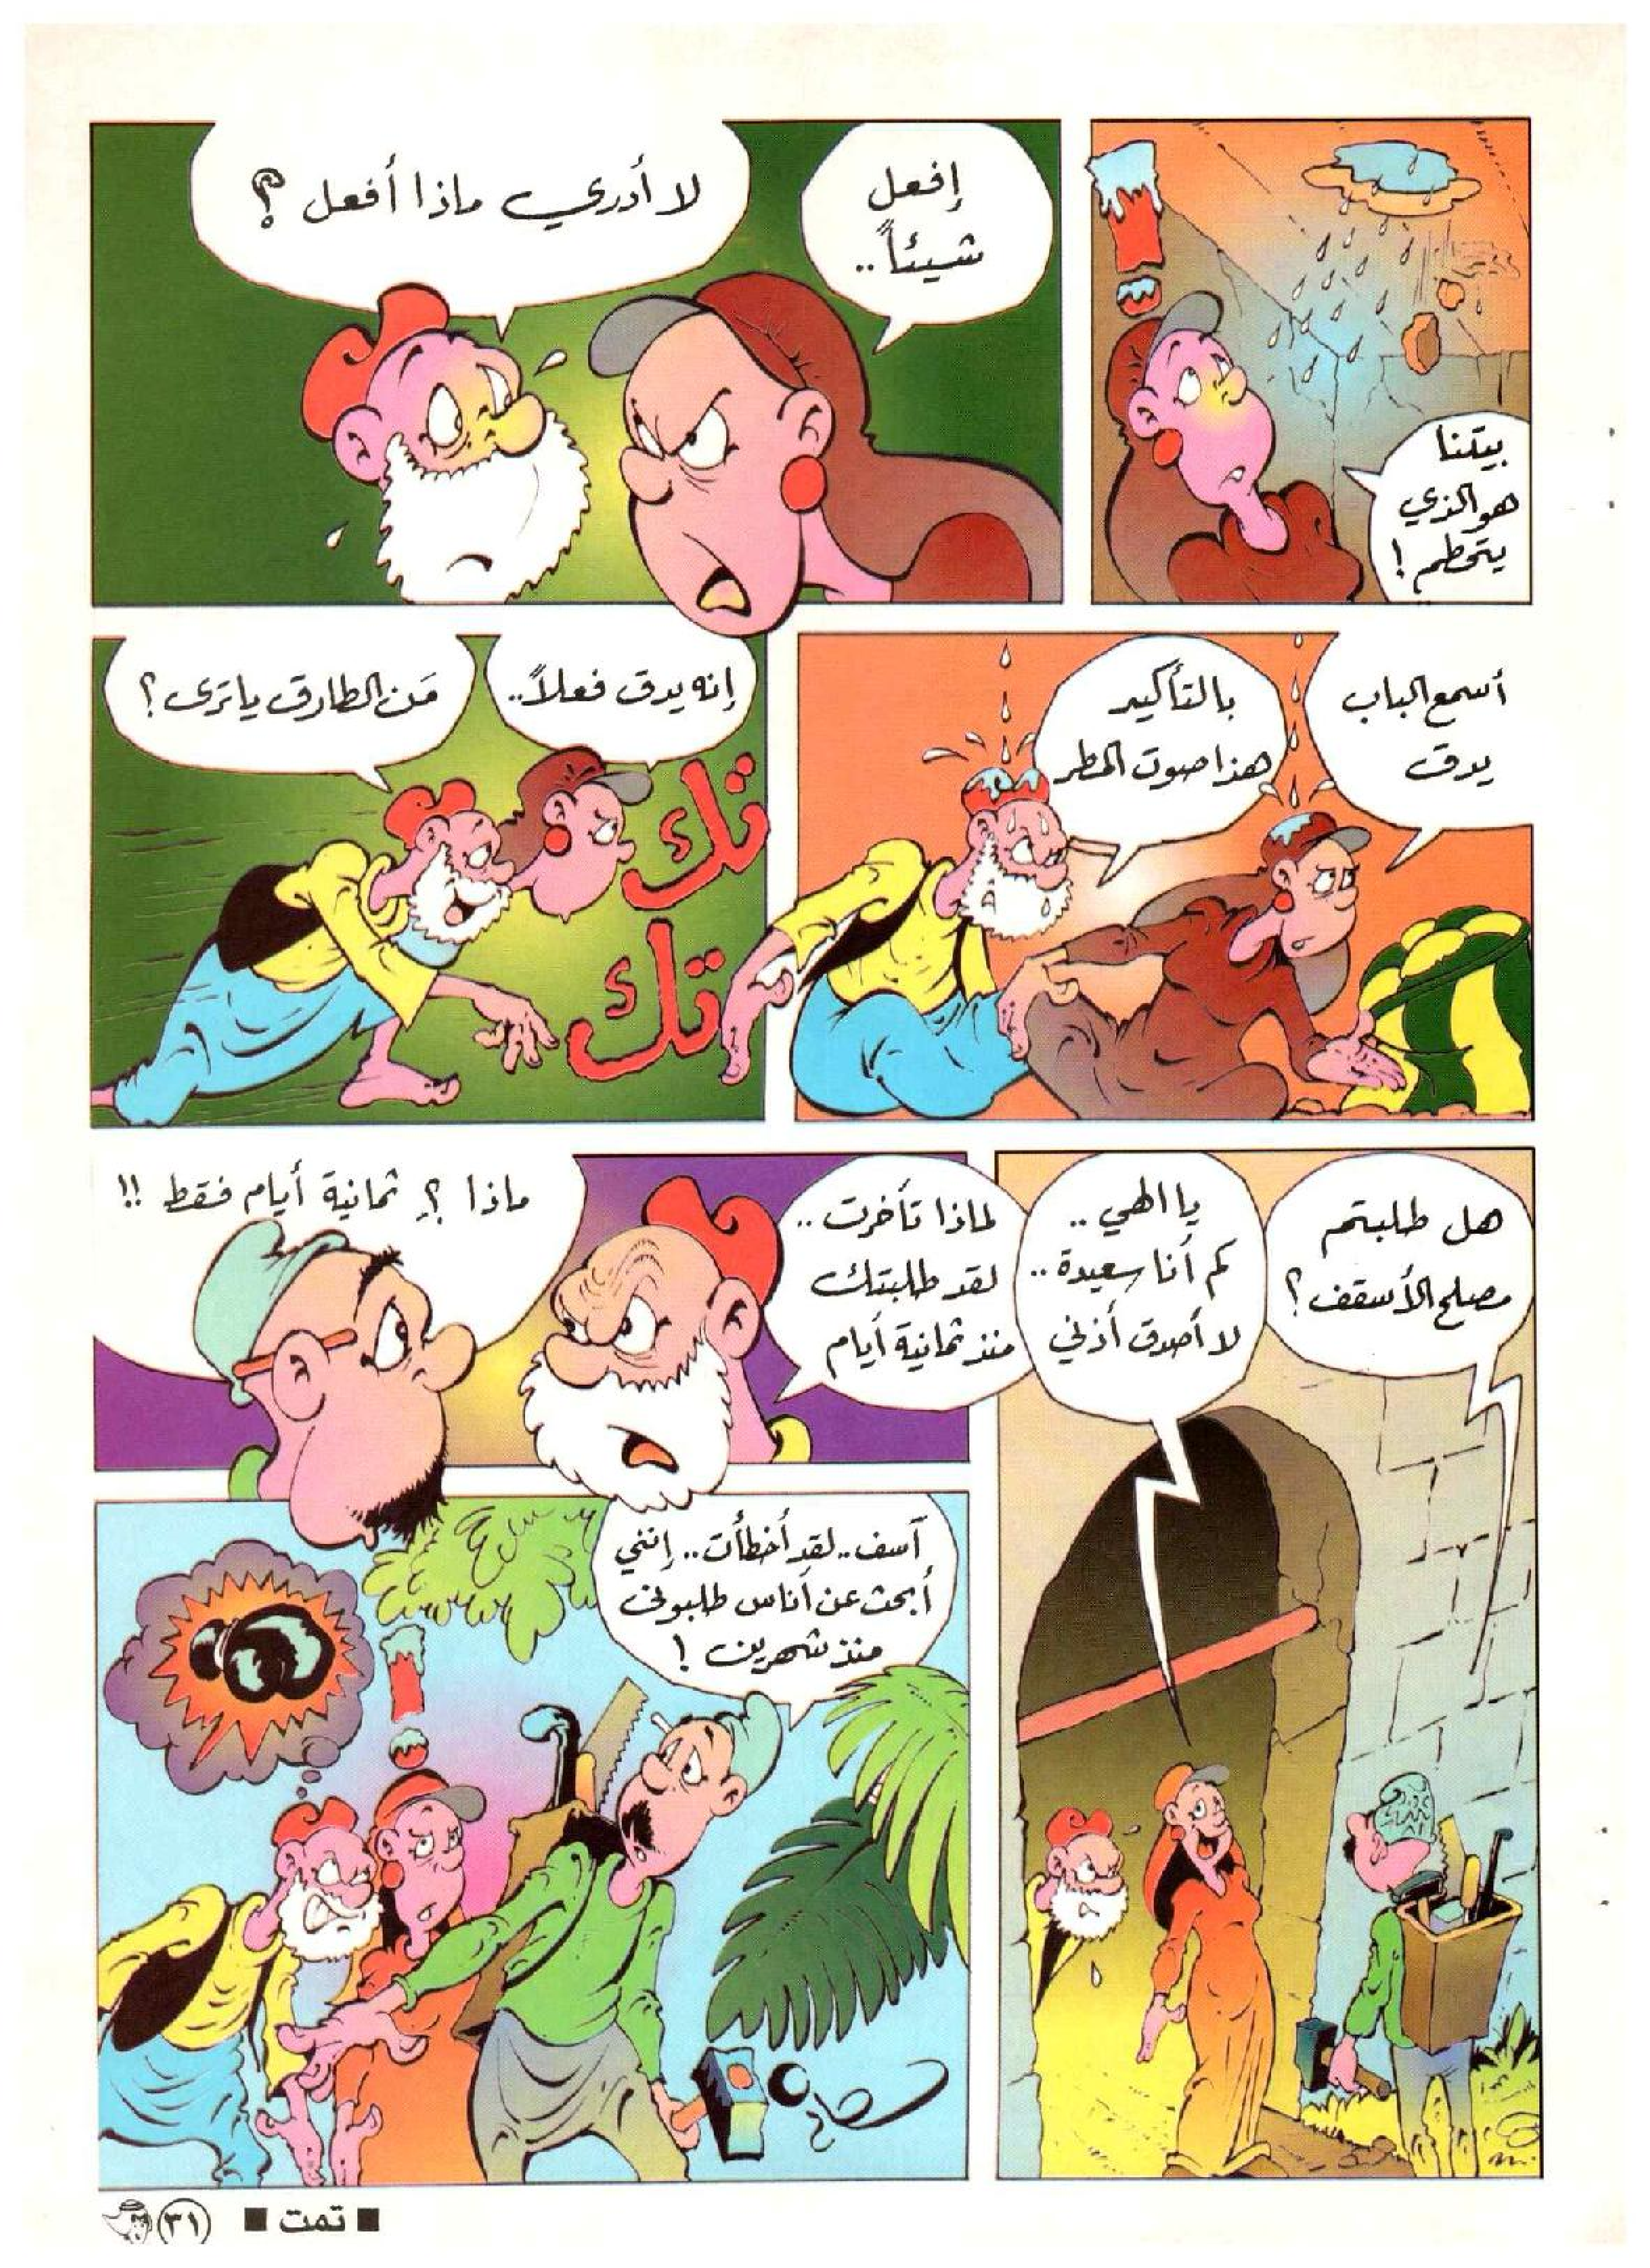 بيتنا
هو الذي
يتحطم !
إفعل
شيئاً..
لا أدري ماذا أفعل ؟
أسمع الباب
يدق
بالتأكيد
هذا صوت المطر
إنه يدق فعلاً..
مَن الطارق يا ترى ؟
تك
تك
هل طلبتم
مصلح الأسقف ؟
يا إلهي ..
كم أنا سعيدة ..
لا أصدق أذني
لماذا تأخرت ..
لقد طلبتك
منذ ثمانية أيام
ماذا ؟ ثمانية أيام فقط !!
آسف .. لقد أخطأت .. إنني
أبحث عن أناس طلبوني
منذ شهرين !
■ تمت ■
٣١